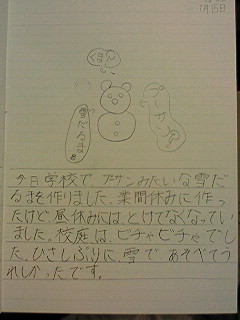 1月15日
くまさん
プーサン?
雪だるま
今日学校で、プサンみたいな雪だ
るまを作りました。業間休みに作っ
たけど昼休みには、とけてなくなってい
ました。校庭は、ビチャビチャでし
た。ひさしぶりに雪であそべてう
れしかったです。